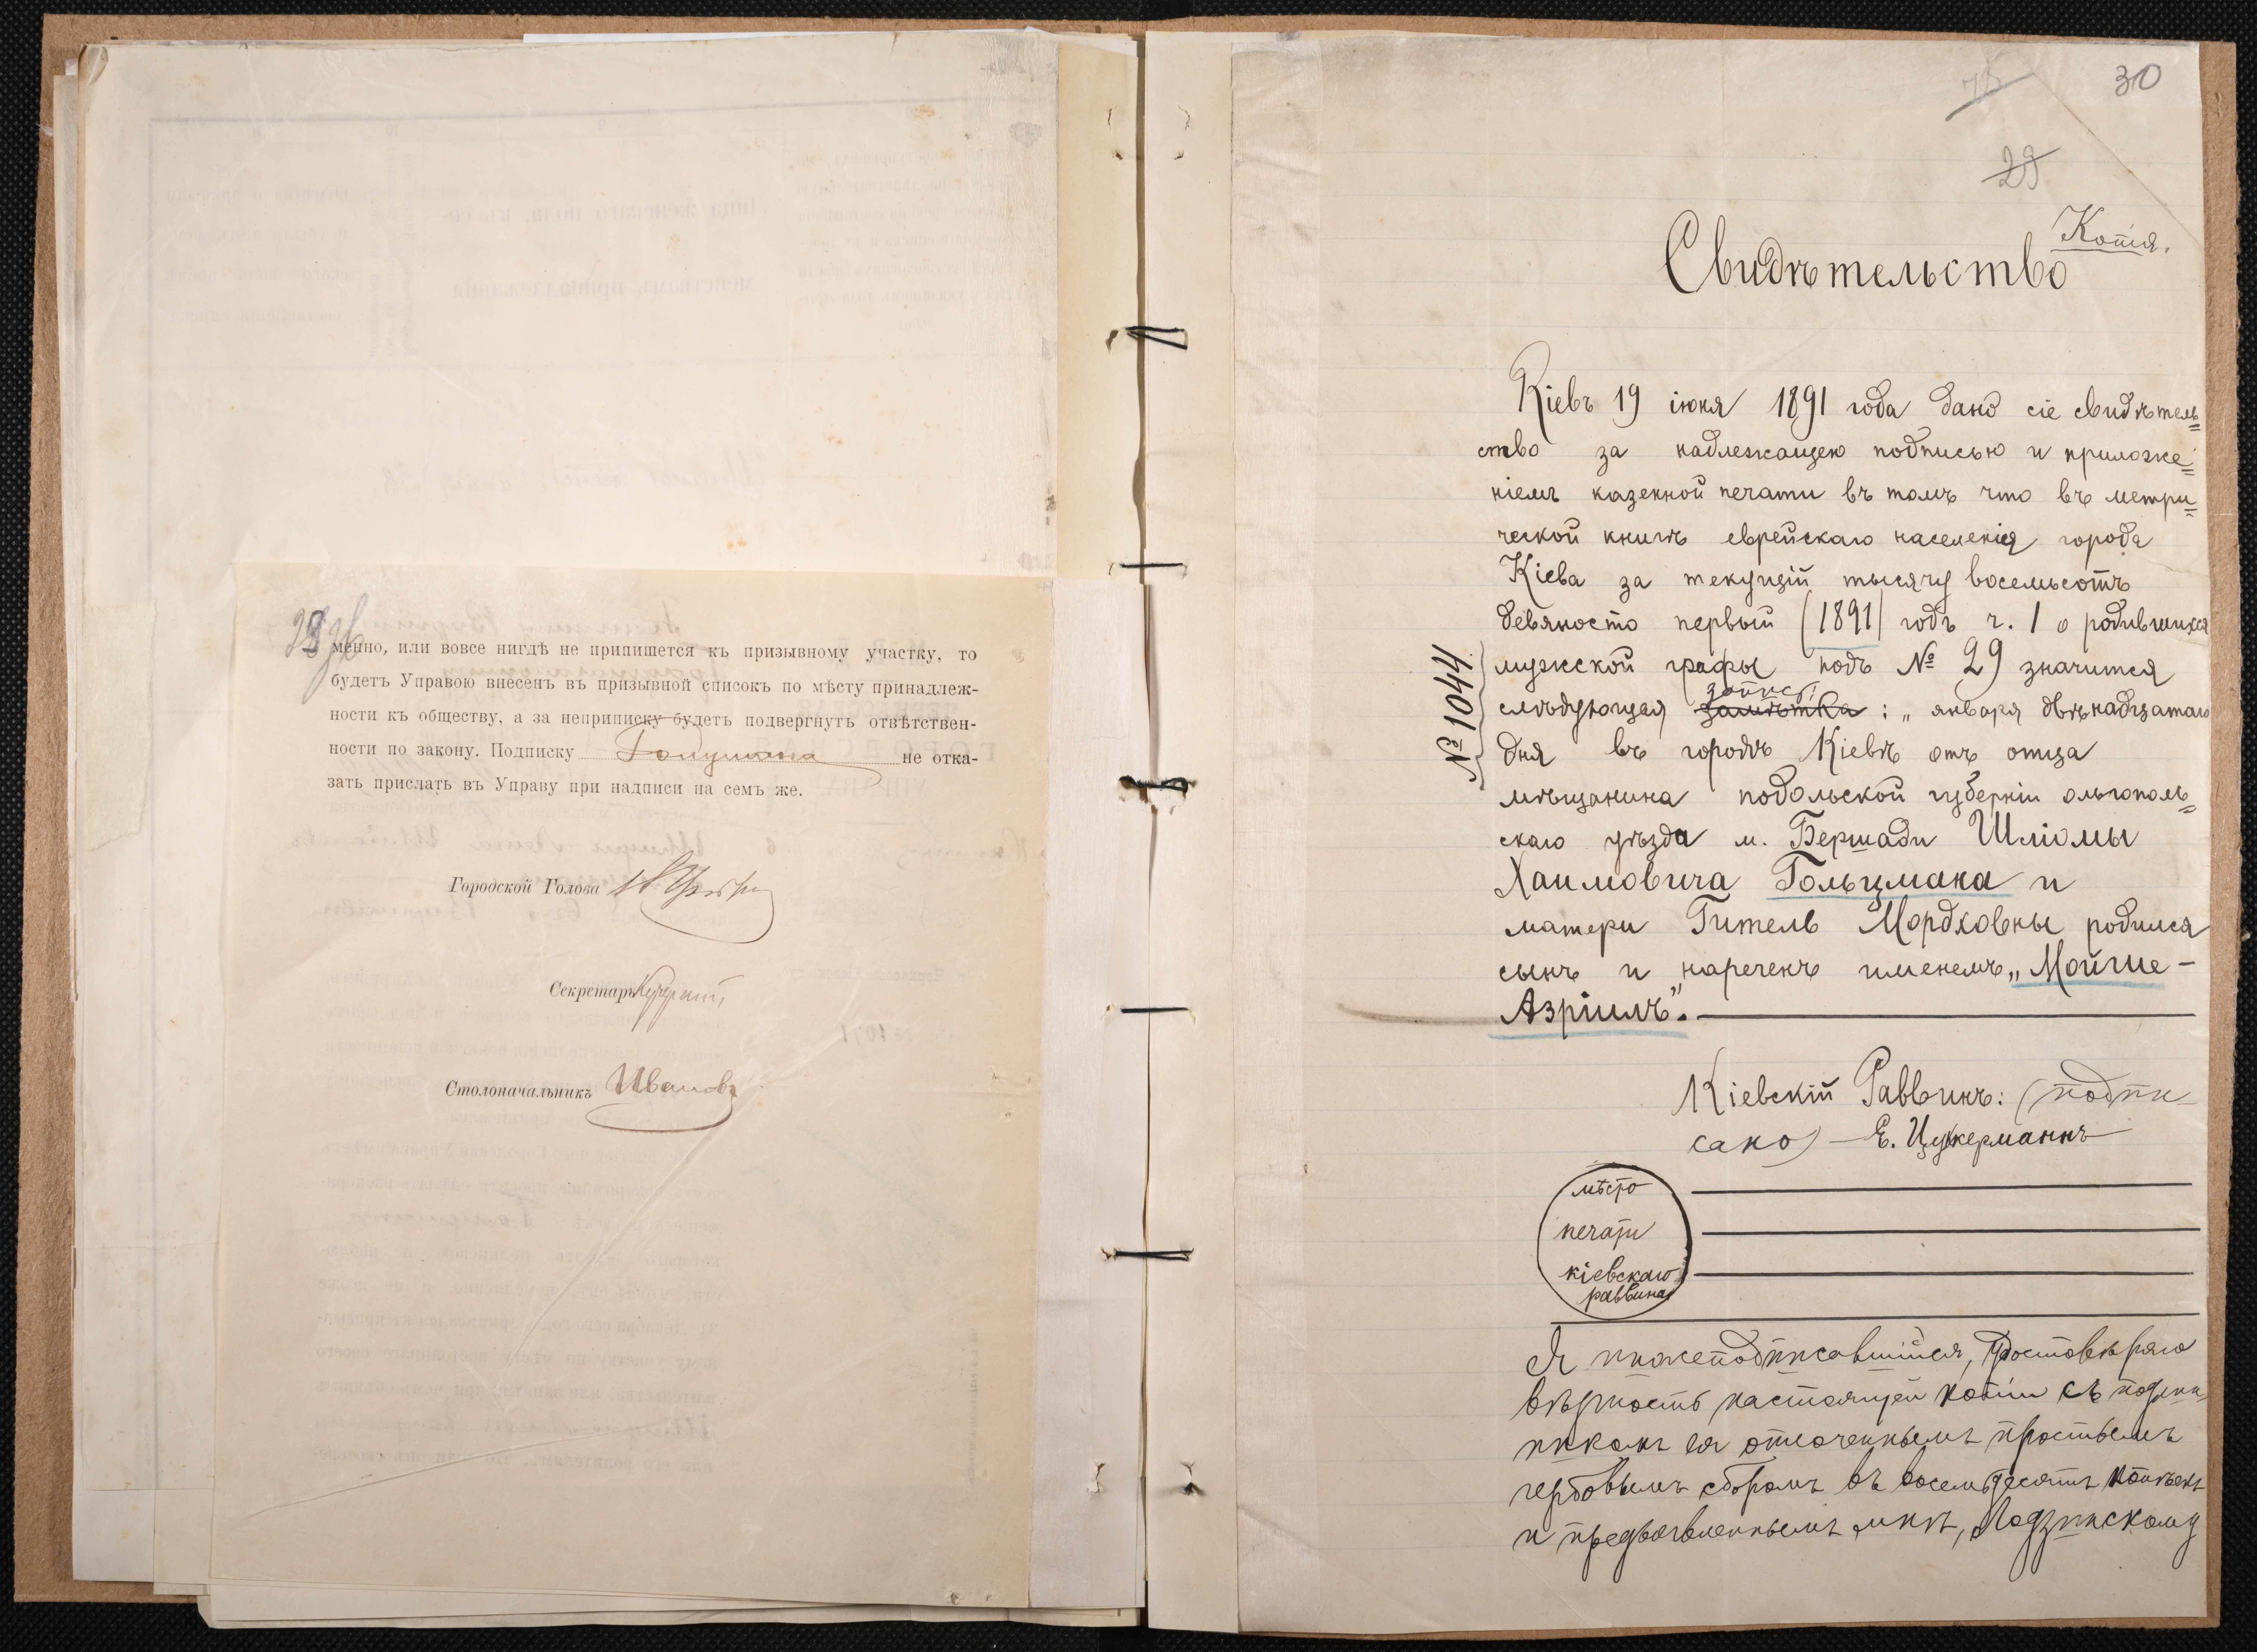 менно, или вовсе нигдѣ не припишется къ призывному участку, то
будетъ Управою внесенъ въ призывной списокъ по мѣсту принадлеж-
ности къ обществу, а за неприписку будетъ подвергнутъ отвѣтствен-
ности по закону. Подписку не отка-
зать прислать въ Управу при надписи на семъ же.
Городской Голова
Секретарь
Столоначальникъ Ивановъ
30
29
Копія.
Свидѣтельство
Кіевъ 19 іюня 1891 года дано сіе свидѣтель=
ство за надлежащею подписью и приложе=
ніемъ казенной печати въ томъ что въ метри=
ческой книгѣ еврейскаго населенія города
Кіева за текущій тысячу восемьсотъ
девяносто первый (1891) годъ ч. 1 о родившихся
мужской графы подъ № 29 значится
слѣдующая замѣтка запись: „января двѣнадцатаго
№ 1044
дня въ городѣ Кіевѣ отъ отца
мѣщанина подольской губерніи ольгополь=
скаго уѣзда м. Бершади Шліомы
Хаимовича Гольцмана и
матери Гитель Мордховны родился
сынъ и нареченъ именемъ „Мойше-
Азріилъ".
Кіевскій Раввинъ: (подпи-
сано) Е. Цукерманнъ
мѣсто
печати
кіевскаго
раввина
Я нижеподписавшійся, удостовѣряю
вѣрность настоящей копіи съ подлин-
никомъ ея оплоченнымъ простымъ
гербовымъ сборомъ въ восемьдесятъ копѣекъ
и предъявленнымъ мнѣ, Лодзинскому